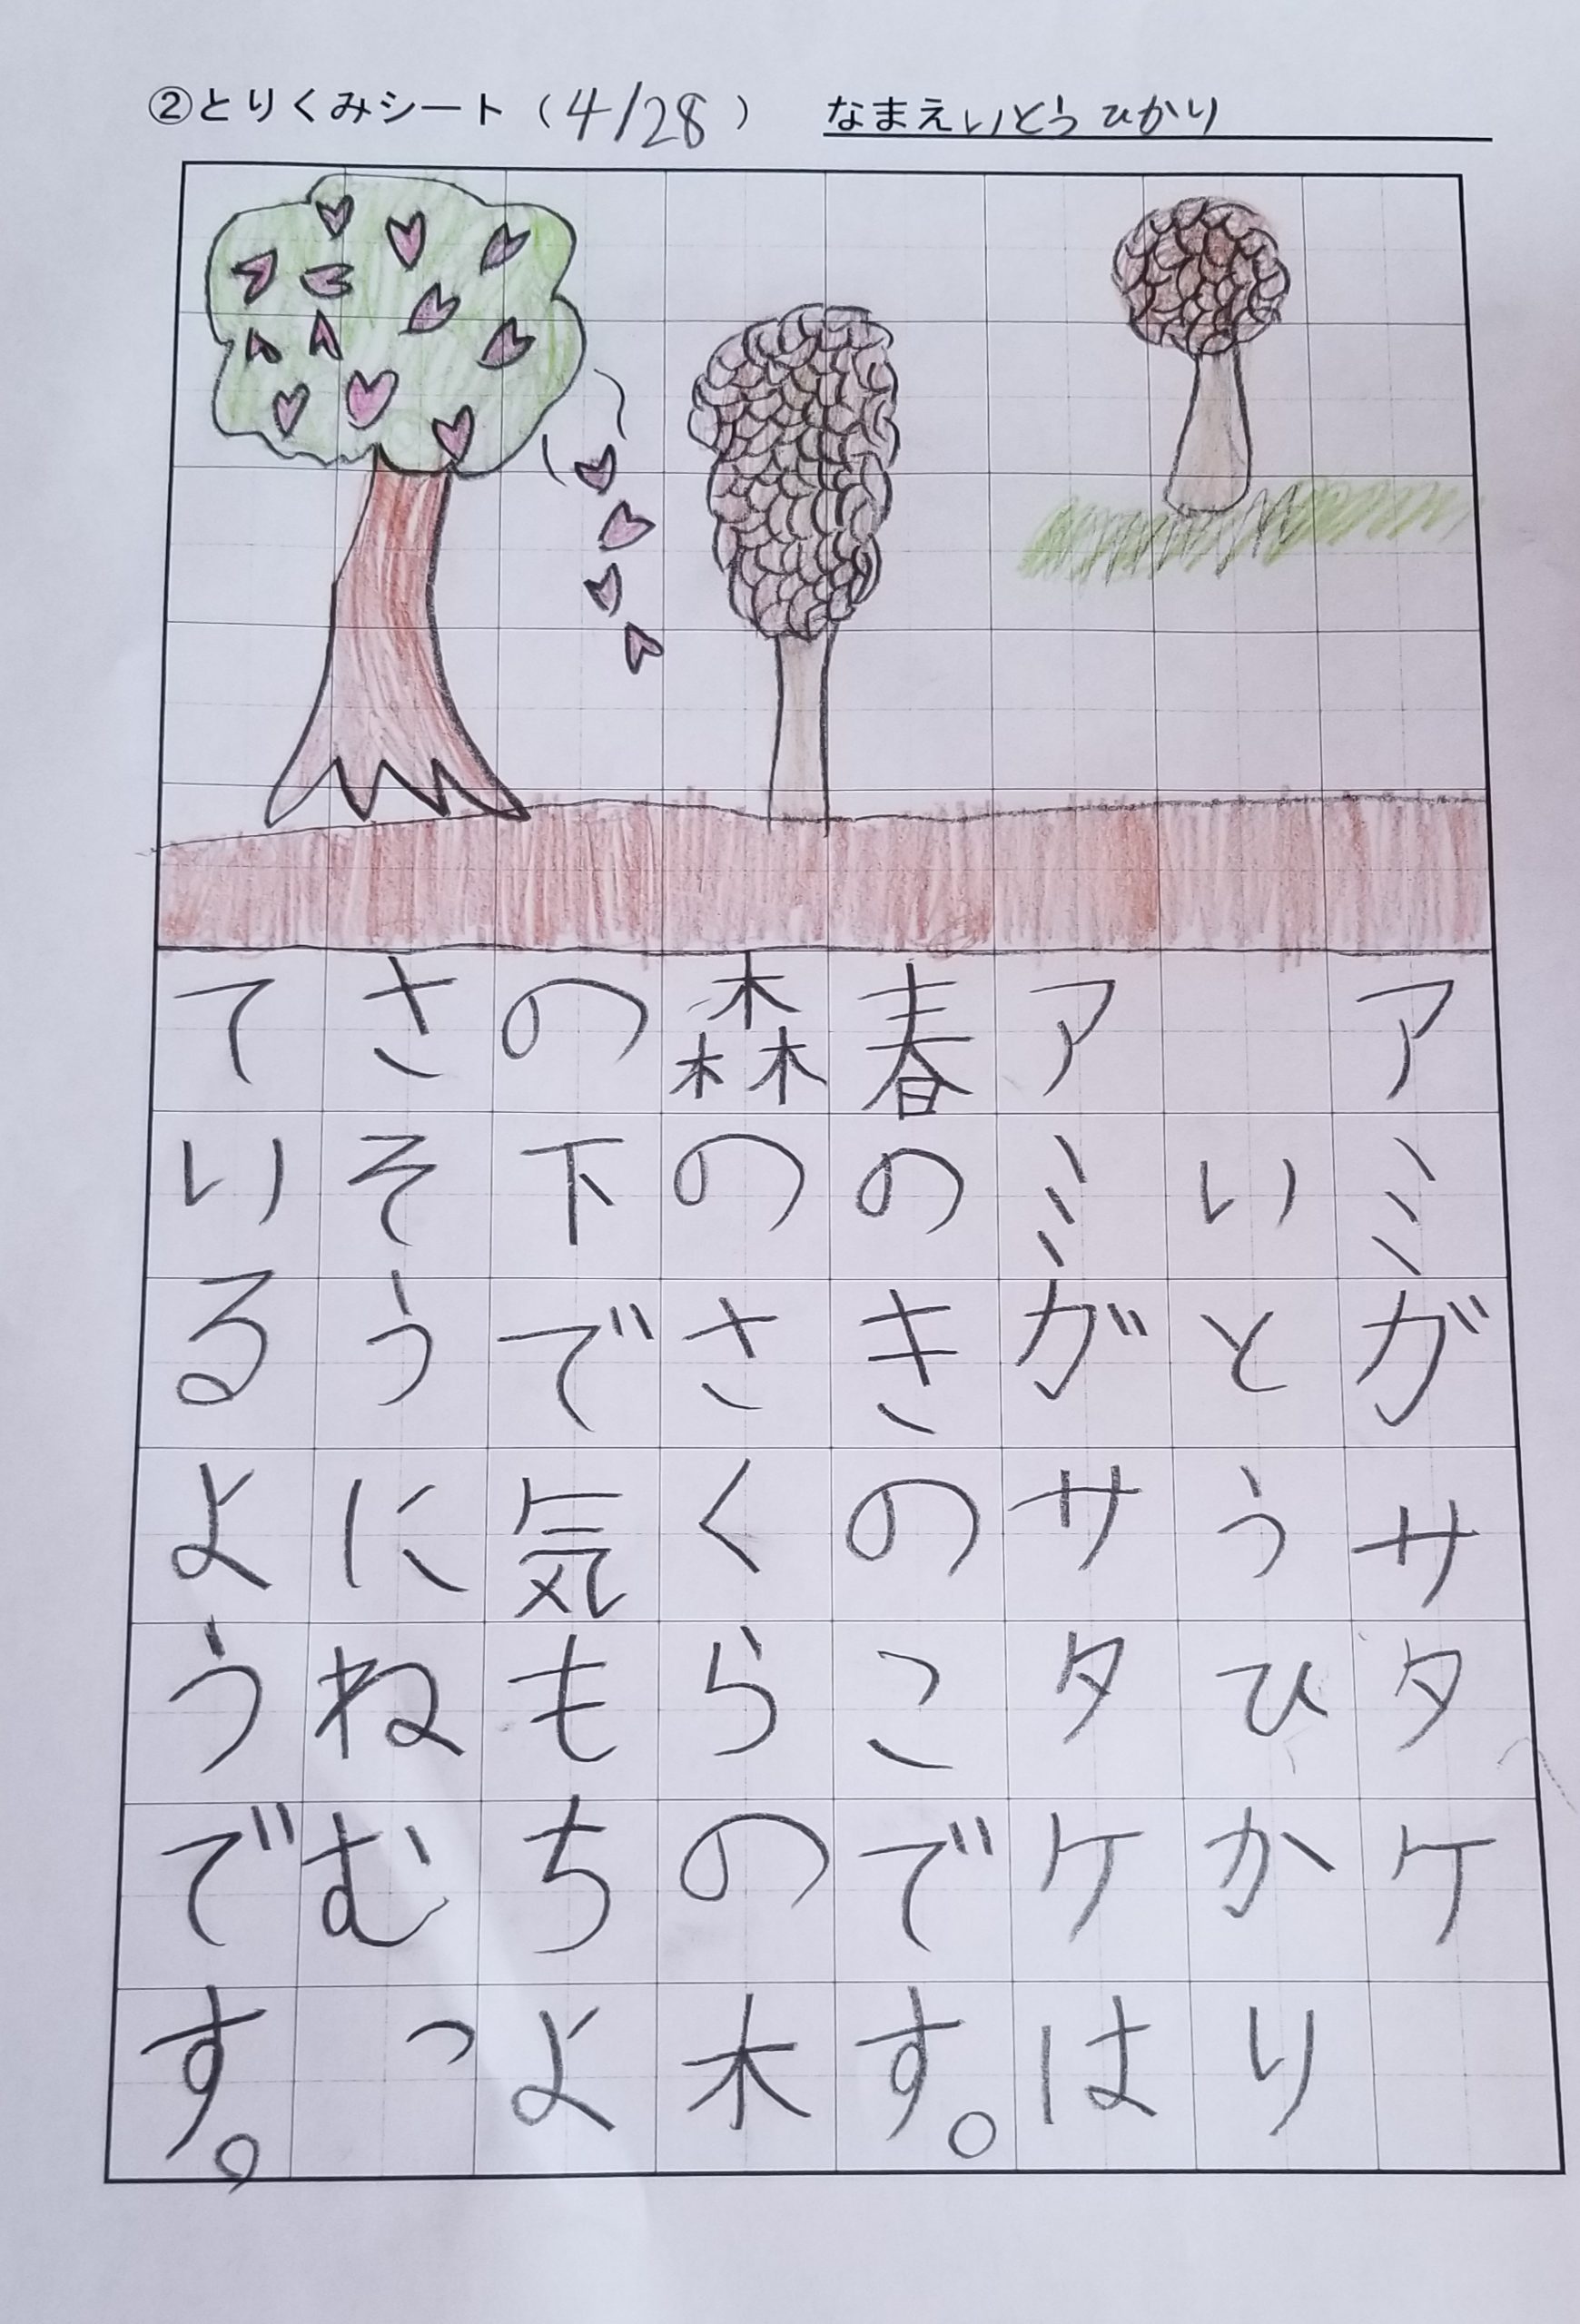 ②とりくみシート（4/28）
なまえ いとう ひかり
アミガサタケ
いとうひかり
アミガサタケは
春のきのこです。
森のさくらの木
の下で気もちよ
さそうにねむっ
ているようです。